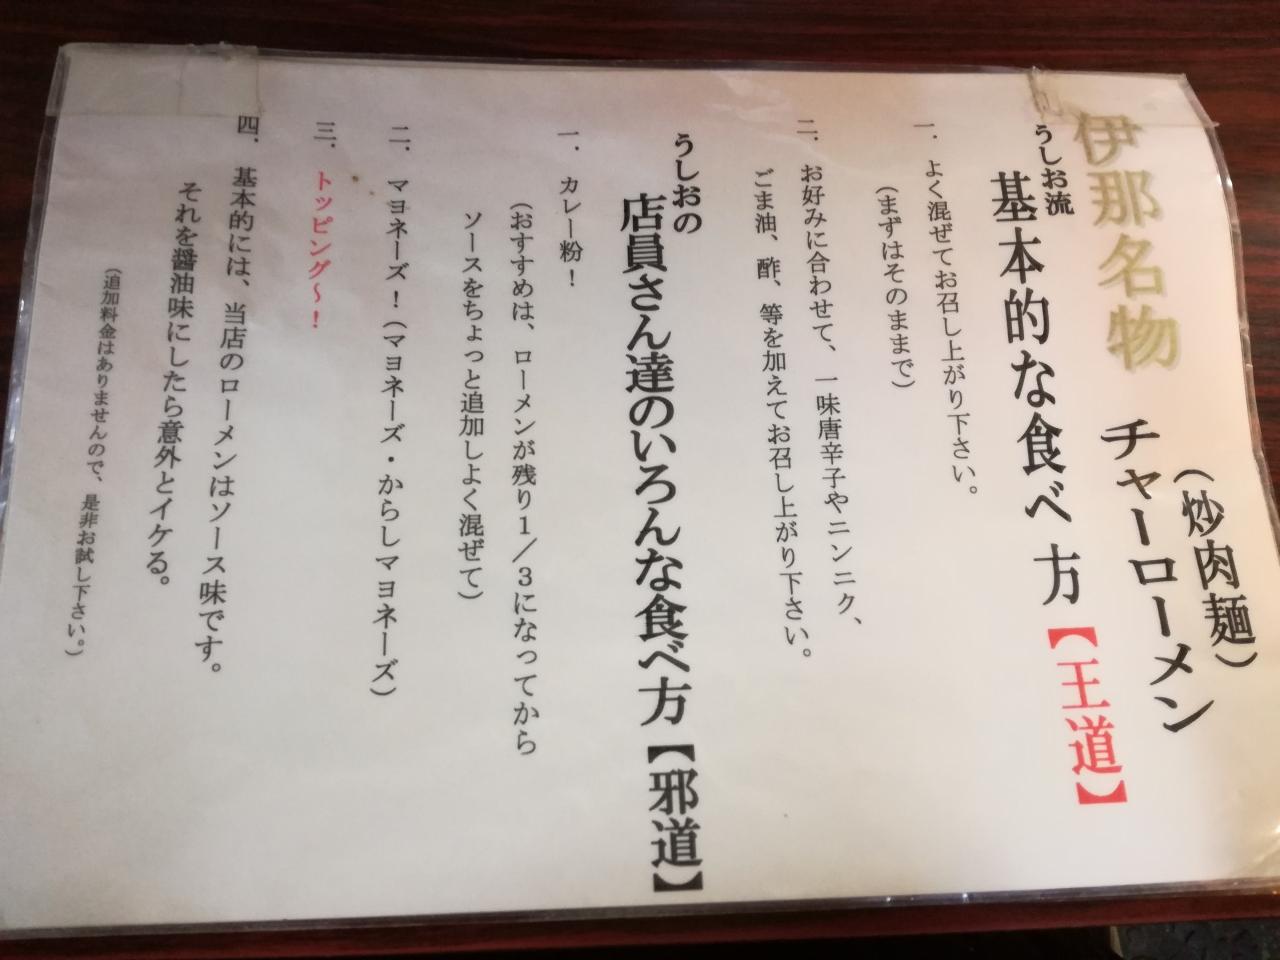 伊那名物 チャーローメン
（炒肉麺）
うしお流
基本的な食べ方【王道】
一．よく混ぜてお召し上がり下さい。
（まずはそのままで）
二．お好みに合わせて、一味唐辛子やニンニク、
ごま油、酢、等を加えてお召し上がり下さい。
うしおの
店員さん達のいろんな食べ方【邪道】
一．カレー粉！
（おすすめは、ローメンが残り１／３になってから
ソースをちょっと追加しよく混ぜて）
二．マヨネーズ！（マヨネーズ・からしマヨネーズ）
三．トッピング～！
四．基本的には、当店のローメンはソース味です。
それを醤油味にしたら意外とイケる。
（追加料金はありませんので、是非お試し下さい。）